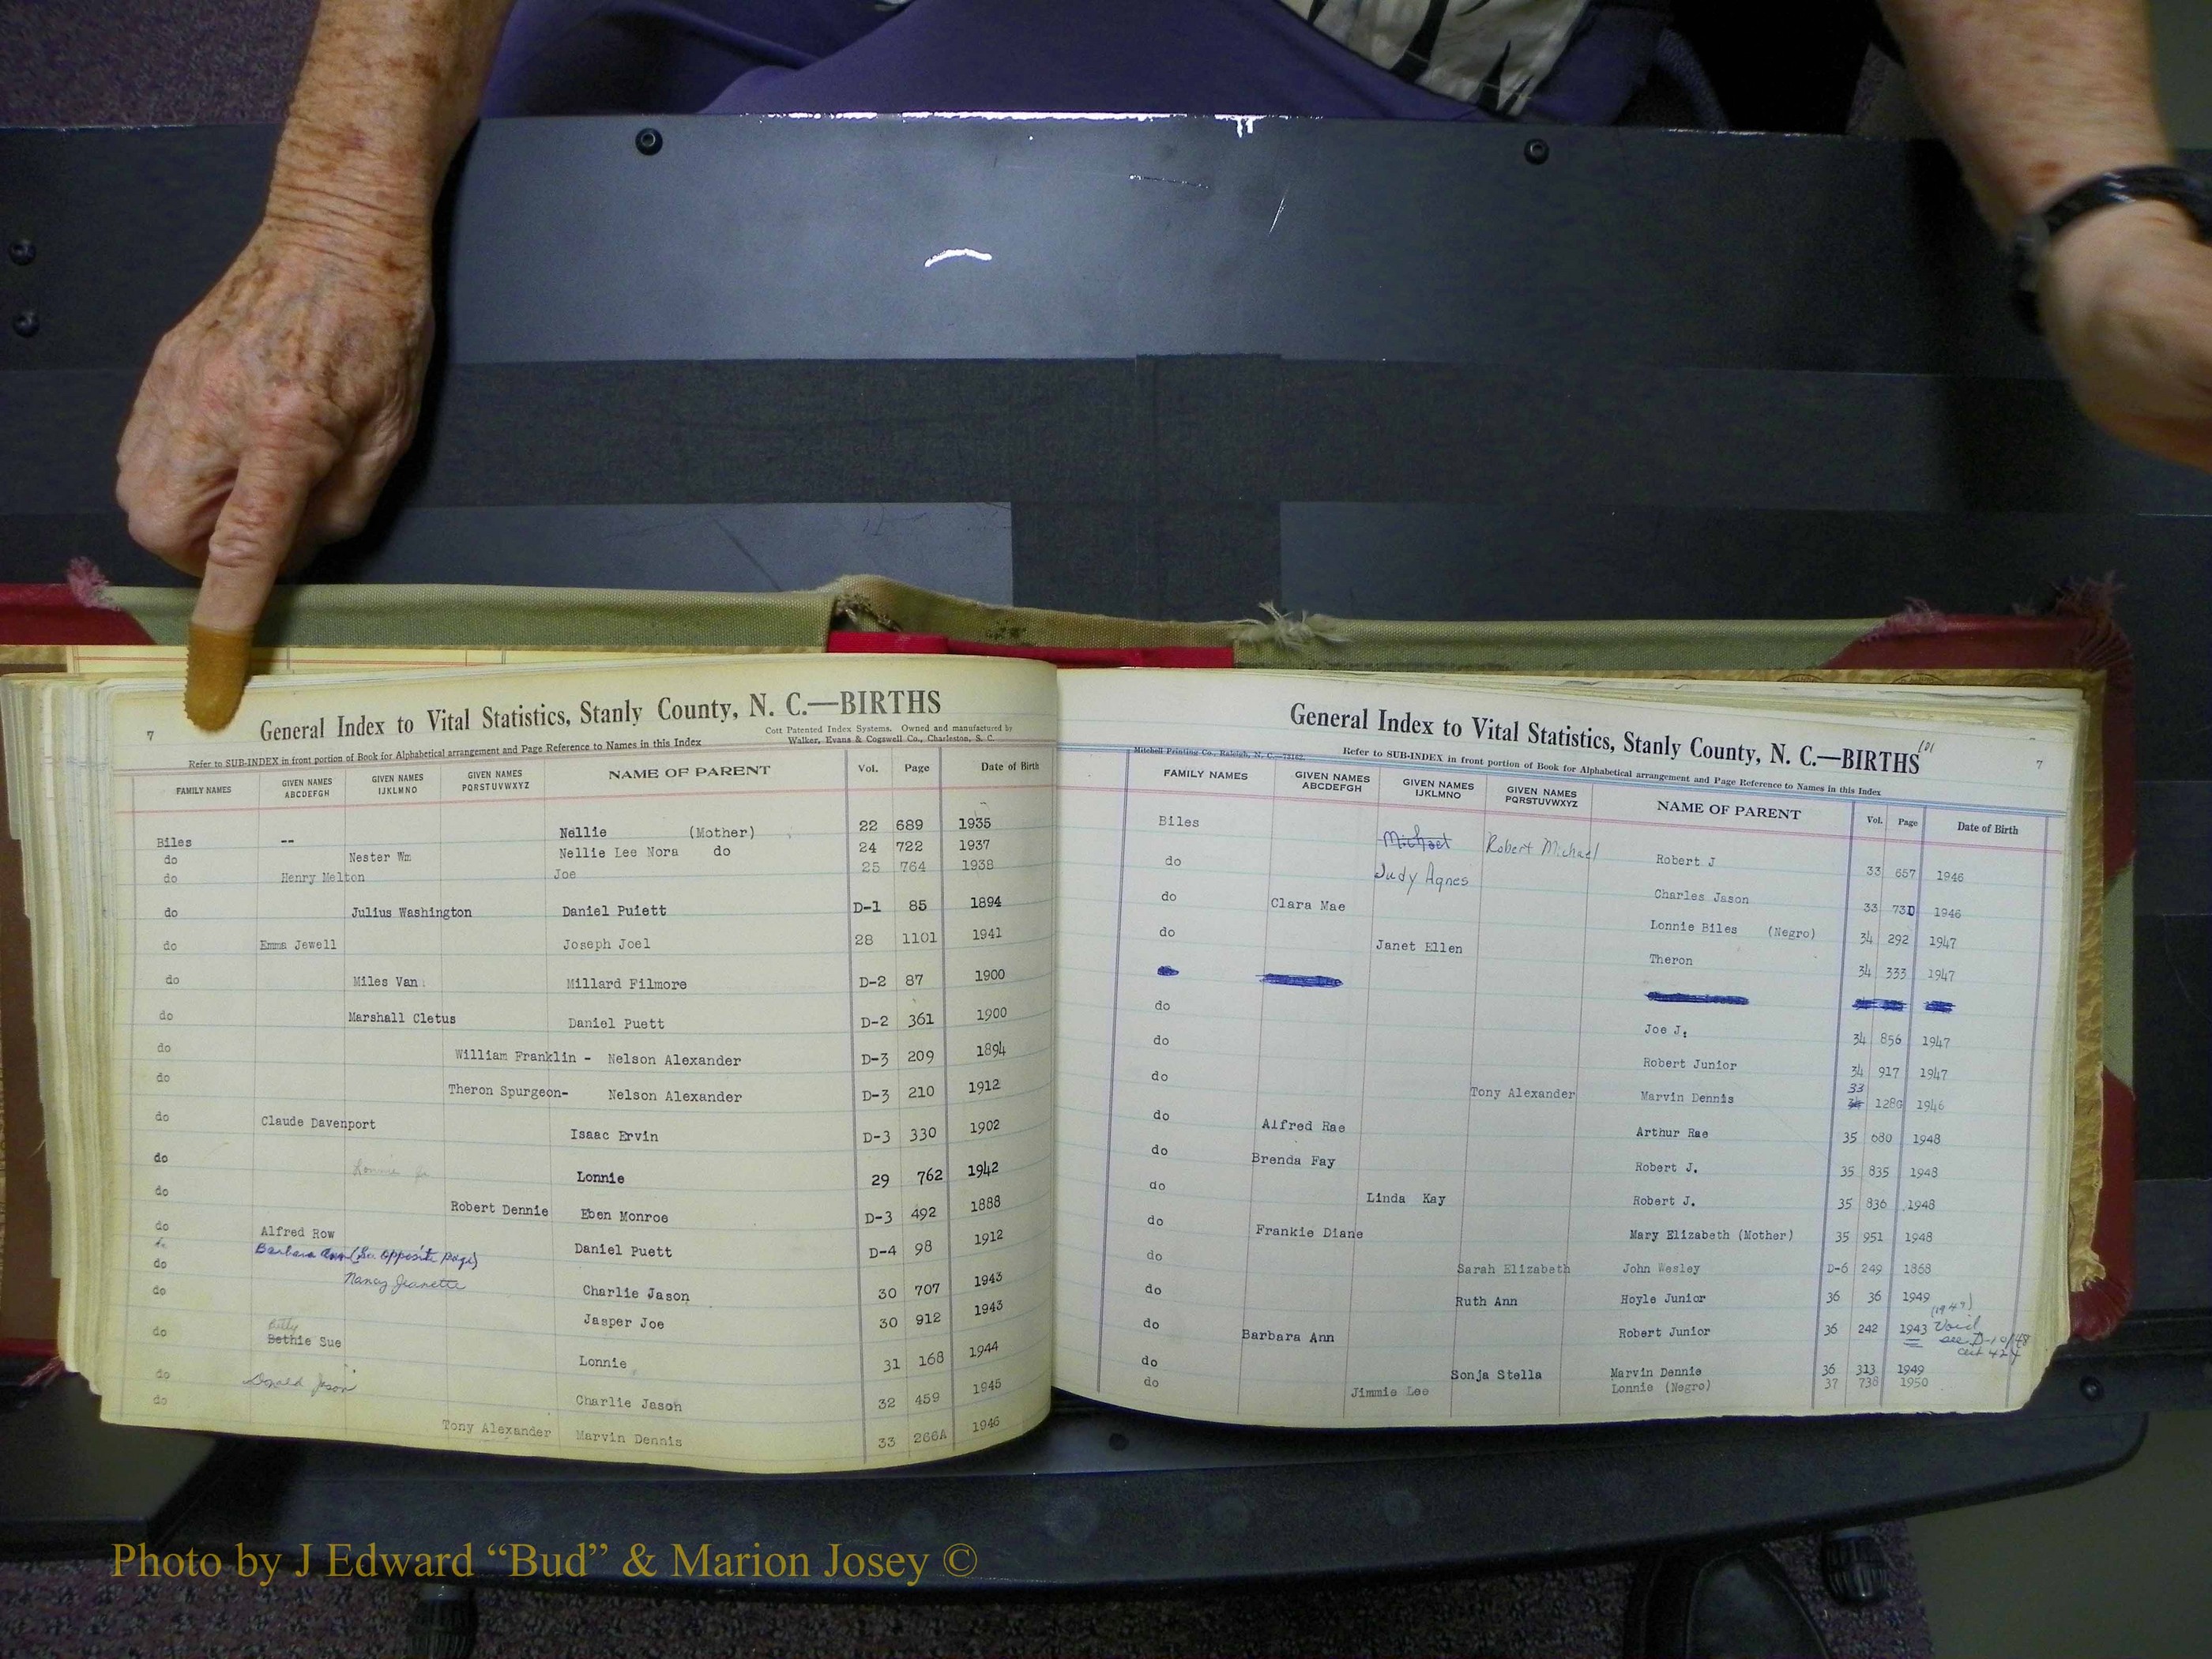 7
General Index to Vital Statistics, Stanly County, N. C.—BIRTHS
Refer to SUB-INDEX in front portion of Book for Alphabetical arrangement and Page Reference to Names in this Index
Cott Patented Index Systems. Owned and manufactured by
Walker, Evans & Cogswell Co., Charleston, S. C.
FAMILY NAMES GIVEN NAMES ABCDEFGH GIVEN NAMES IJKLMNO GIVEN NAMES PQRSTUVWXYZ NAME OF PARENT Vol. Page Date of Birth
Biles -- Nellie (Mother) 22 689 1935
do Nester Wm Nellie Lee Nora do 24 722 1937
do Henry Melton Joe 25 764 1938
do Julius Washington Daniel Puiett D-1 85 1894
do Emma Jewell Joseph Joel 28 1101 1941
do Miles Van Millard Filmore D-2 87 1900
do Marshall Cletus Daniel Puett D-2 361 1900
do William Franklin - Nelson Alexander D-3 209 1894
do Theron Spurgeon- Nelson Alexander D-3 210 1912
do Claude Davenport Isaac Ervin D-3 330 1902
do Lonnie Jr Lonnie 29 762 1942
do Robert Dennie Eben Monroe D-3 492 1888
do Alfred Row Daniel Puett D-4 98 1912
do Barbara Ann (See Opposite page)
do Nancy Jeanette Charlie Jason 30 707 1943
do Jasper Joe 30 912 1943
Betty
do Bethie Sue Lonnie 31 168 1944
do Donald Jason Charlie Jason 32 459 1945
do Tony Alexander Marvin Dennis 33 266A 1946
General Index to Vital Statistics, Stanly County, N. C.—BIRTHS
101
7
Mitchell Printing Co., Raleigh, N. C.—72162
Refer to SUB-INDEX in front portion of Book for Alphabetical arrangement and Page Reference to Names in this Index
FAMILY NAMES GIVEN NAMES ABCDEFGH GIVEN NAMES IJKLMNO GIVEN NAMES PQRSTUVWXYZ NAME OF PARENT Vol. Page Date of Birth
Biles Michael Robert Michael Robert J 33 657 1946
do Judy Agnes Charles Jason 33 73D 1946
do Clara Mae Lonnie Biles (Negro) 34 292 1947
do Janet Ellen Theron 34 333 1947
do Joe J. 34 856 1947
do Robert Junior 34 917 1947
33
do Tony Alexander Marvin Dennis 34 128G 1946
do Alfred Rae Arthur Rae 35 680 1948
do Brenda Fay Robert J. 35 835 1948
do Linda Kay Robert J. 35 836 1948
do Frankie Diane Mary Elizabeth (Mother) 35 951 1948
do Sarah Elizabeth John Wesley D-6 249 1868
do Ruth Ann Hoyle Junior 36 36 1949
do Barbara Ann Robert Junior 36 242 1943 (1947) Void
see D-10/48
do Sonja Stella Marvin Dennie 36 313 1949
do Jimmie Lee Lonnie (Negro) 37 738 1950
Photo by J Edward “Bud” & Marion Josey ©